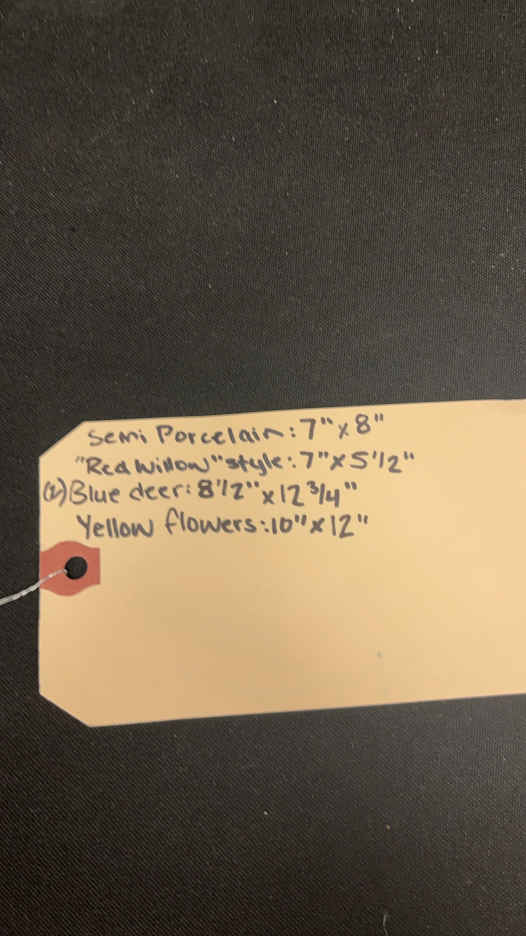 Semi Porcelain: 7" x 8"
"Red Willow" style: 7" x 5 1/2"
(2) Blue deer: 8 1/2" x 12 3/4"
Yellow flowers: 10" x 12"